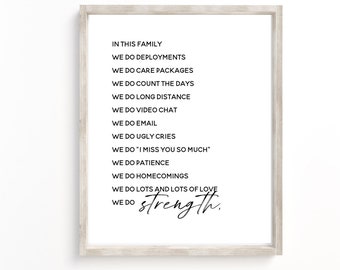 IN THIS FAMILY
WE DO DEPLOYMENTS
WE DO CARE PACKAGES
WE DO COUNT THE DAYS
WE DO LONG DISTANCE
WE DO VIDEO CHAT
WE DO EMAIL
WE DO UGLY CRIES
WE DO "I MISS YOU SO MUCH"
WE DO PATIENCE
WE DO HOMECOMINGS
WE DO LOTS AND LOTS OF LOVE
WE DO strength.